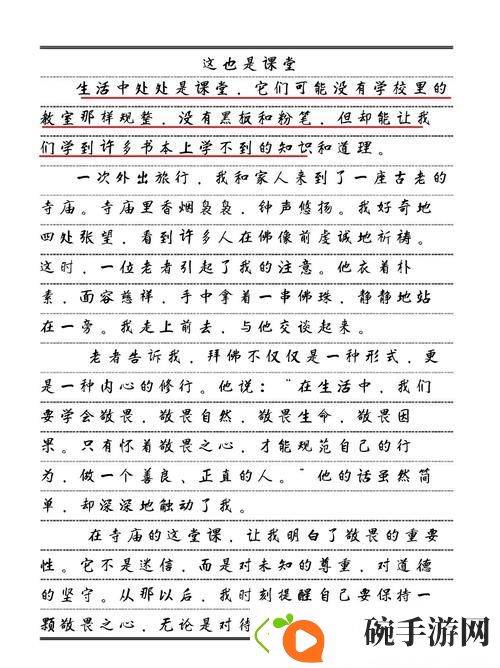 这也是课堂
生活中处处是课堂，它们可能没有学校里的
教室那样规整，没有黑板和粉笔，但却能让我
们学到许多书本上学不到的知识和道理。
一次外出旅行，我和家人来到了一座古老的
寺庙。寺庙里香烟袅袅，钟声悠扬。我好奇地
四处张望，看到许多人在佛像前虔诚地祈祷。
这时，一位老者引起了我的注意。他衣着朴
素，面容慈祥，手中拿着一串佛珠，静静地站
在一旁。我走上前去，与他交谈起来。
老者告诉我，拜佛不仅仅是一种形式，更
是一种内心的修行。他说：“在生活中，我们
要学会敬畏，敬畏自然，敬畏生命，敬畏因
果。只有怀着敬畏之心，才能规范自己的行
为，做一个善良、正直的人。”他的话虽然简
单，却深深地触动了我。
在寺庙的这堂课，让我明白了敬畏的重要
性。它不是迷信，而是对未知的尊重，对道德
的坚守。从那以后，我时刻提醒自己要保持一
颗敬畏之心，无论是对待
碗手游网